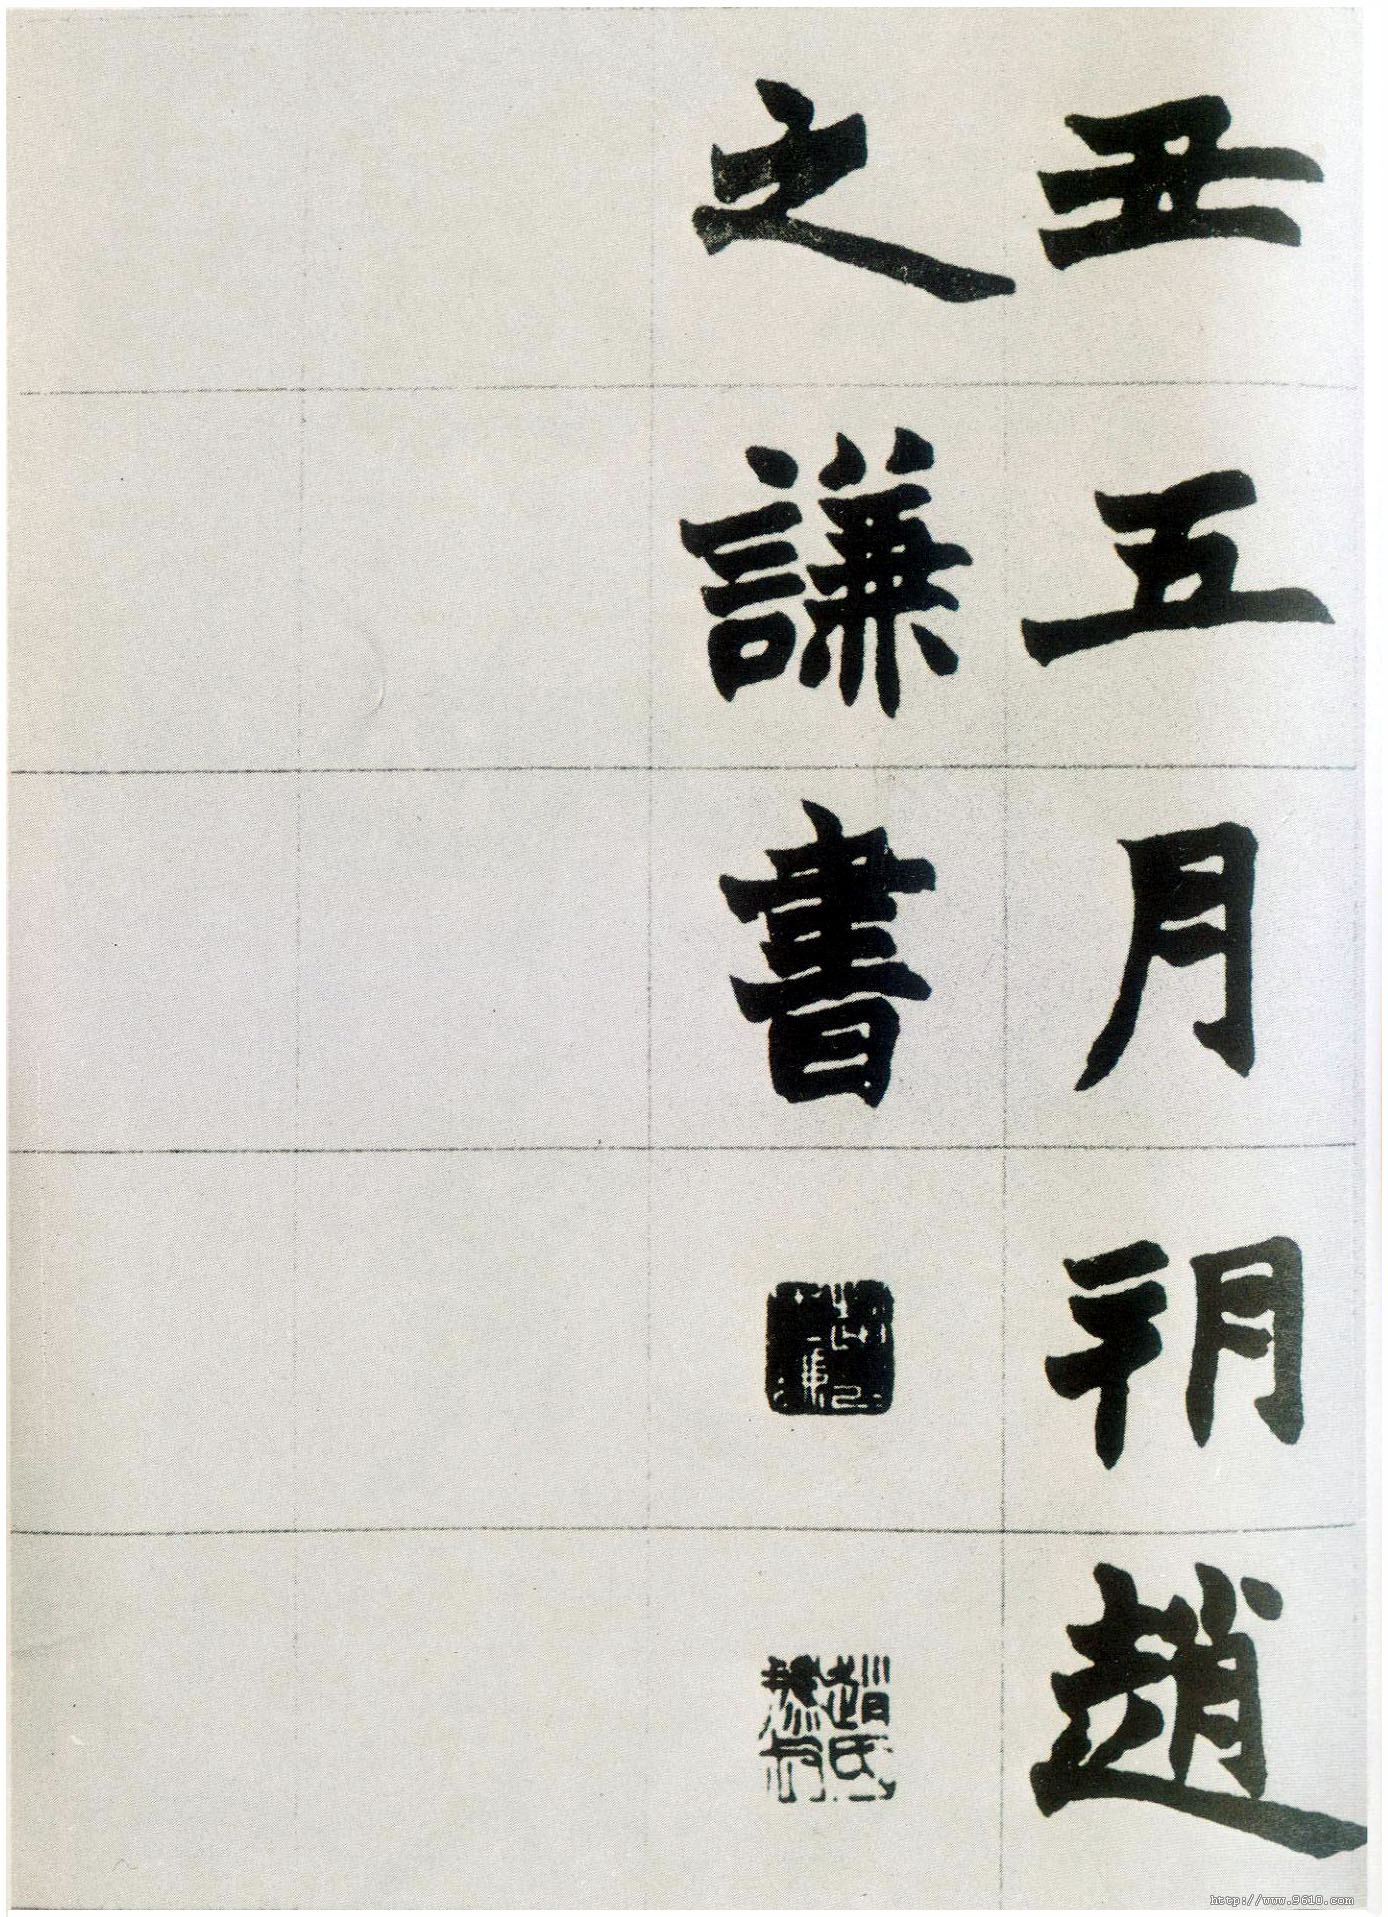 丑五月朔趙
之謙書
趙氏撝叔
http://www.9610.com